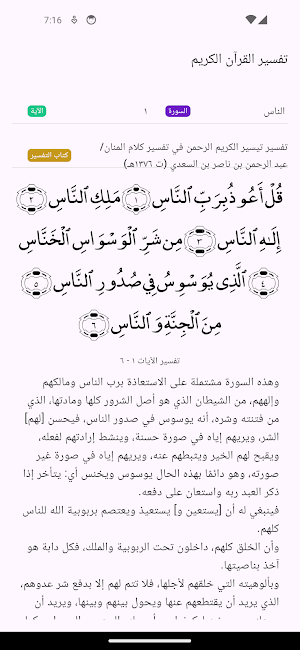 7:16
تفسير القرآن الكريم
الناس السورة ١ الآية
تفسير تيسير الكريم الرحمن في تفسير كلام المنان/
عبد الرحمن بن ناصر بن السعدي (ت ١٣٧٦هـ)
كتاب التفسير
قُلْ أَعُوذُ بِرَبِّ ٱلنَّاسِ ١ مَلِكِ ٱلنَّاسِ ٢
إِلَٰهِ ٱلنَّاسِ ٣ مِن شَرِّ ٱلْوَسْوَاسِ ٱلْخَنَّاسِ
٤ ٱلَّذِى يُوَسْوِسُ فِى صُدُورِ ٱلنَّاسِ ٥
مِنَ ٱلْجِنَّةِ وَٱلنَّاسِ ٦
تفسير الآيات ١ - ٦
وهذه السورة مشتملة على الاستعاذة برب الناس ومالكهم
وإلههم، من الشيطان الذي هو أصل الشرور كلها ومادتها، الذي
من فتنته وشره، أنه يوسوس في صدور الناس، فيحسن [لهم]
الشر، ويريهم إياه في صورة حسنة، وينشط إرادتهم لفعله،
ويقبح لهم الخير ويثبطهم عنه، ويريهم إياه في صورة غير
صورته، وهو دائمًا بهذه الحال يوسوس ويخنس أي: يتأخر إذا
ذكر العبد ربه واستعان على دفعه.
فينبغي له أن [يستعين و] يستعيذ ويعتصم بربوبية الله للناس
كلهم.
وأن الخلق كلهم، داخلون تحت الربوبية والملك، فكل دابة هو
آخذ بناصيتها.
وبألوهيته التي خلقهم لأجلها، فلا تتم لهم إلا بدفع شر عدوهم،
الذي يريد أن يقتطعهم عنها ويحول بينهم وبينها، ويريد أن